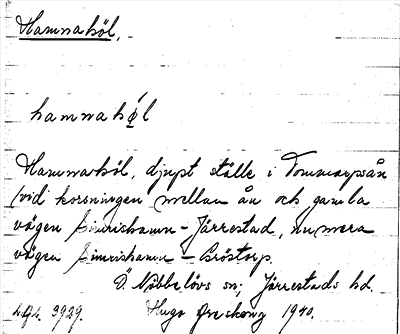 Hamnahöl,
hamnahøl
Hamnahöl, djupt ställe i Tommarpsån
(vid korsningen mellan ån och gamla
vägen Simrishamn - Järrestad, numera
vägen Simrishamn - Gröstorp.
Ö. Nöbbelövs sn; Järrestads hd.
3929. Hugo Areskoug 1940.